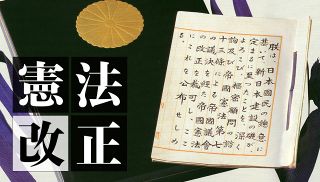 憲法
改正
朕は、日本國民の總意に
基いて、新日本建設の礎が、
定まるに至つたことを、深く
よろこび、樞密顧問の諮
詢及び帝國憲法第七
十三條による帝國議會
の議決を經た帝國憲法
の改正を裁可し、ここ
にこれを公布せしめ